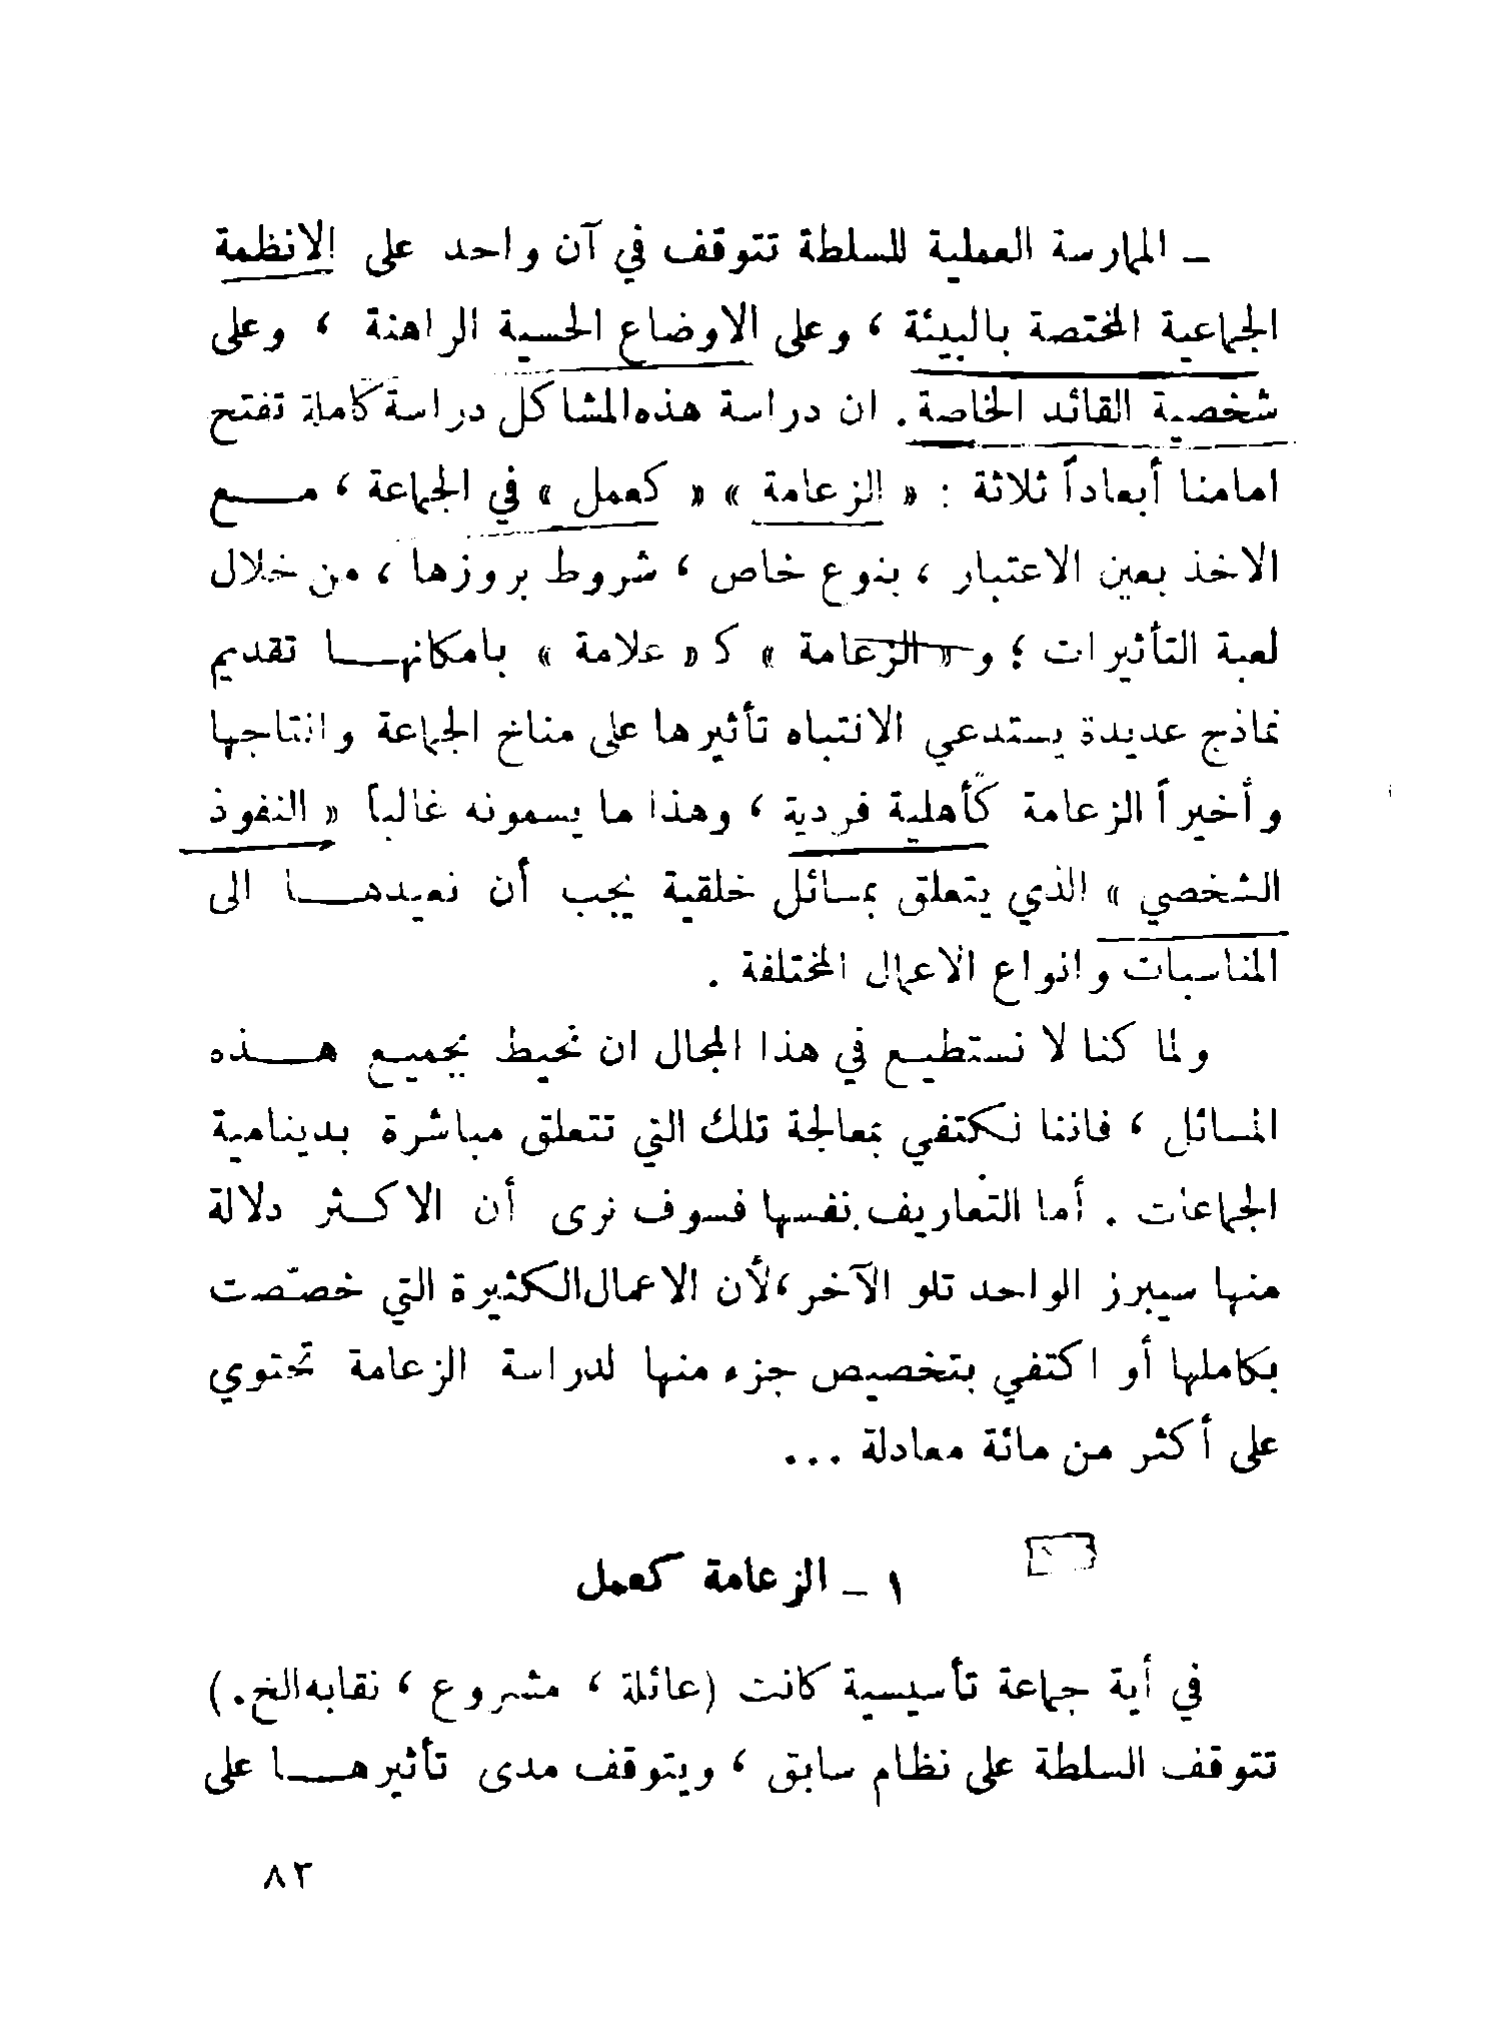 ـ الممارسة العملية للسلطة تتوقف في آن واحد على الانظمة
الجماعية المختصة بالبيئة ، وعلى الاوضاع الحسية الراهنة ، وعلى
شخصية القائد الخاصة . ان دراسة هذه المشاكل دراسة كاملة تفتح
امامنا أبعاداً ثلاثة : « الزعامة » « كعمل » في الجماعة ، مـــع
الاخذ بعين الاعتبار ، بنوع خاص ، شروط بروزها ، من خلال
لعبة التأثيرات ؛ و « الزعامة » كـ « علامة » بامكانهـــا تقديم
نماذج عديدة يستدعي الانتباه تأثيرها على مناخ الجماعة وانتاجها
وأخيراً الزعامة كأهلية فردية ، وهذا ما يسمونه غالباً « النفوذ
الشخصي » الذي يتعلق بمسائل خلقية يجب أن نعيدهـــا الى
المناسبات وانواع الاعمال المختلفة .
ولما كنا لا نستطيـع في هذا المجال ان نحيط بجميـع هـــذه
المسائل ، فاننا نكتفي بمعالجة تلك التي تتعلق مباشرة بدينامية
الجماعات . أما التعاريف نفسها فسوف نرى أن الاكـثر دلالة
منها سيبرز الواحد تلو الآخر ، لأن الاعمال الكثيرة التي خصّصت
بكاملها أو اكتفي بتخصيص جزء منها لدراسة الزعامة تحتوي
على أكثر من مائة معادلة ...
١ ـ الزعامة كعمل
في أية جماعة تأسيسية كانت (عائلة ، مشروع ، نقابه الخ.)
تتوقف السلطة على نظام سابق ، ويتوقف مدى تأثيرهـــا على
٨٣